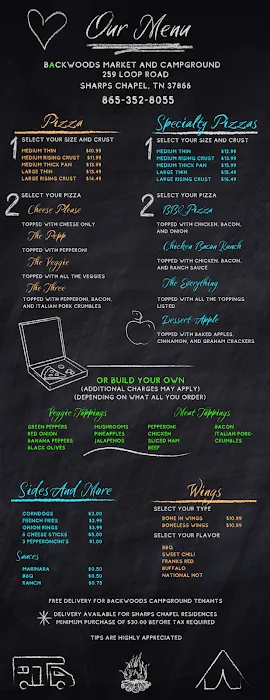 Our Menu
BACKWOODS MARKET AND CAMPGROUND
259 LOOP ROAD
SHARPS CHAPEL, TN 37866
865-352-8055
Pizza
1 SELECT YOUR SIZE AND CRUST
MEDIUM THIN $10.99
MEDIUM RISING CRUST $11.99
MEDIUM THICK PAN $13.99
LARGE THIN $13.49
LARGE RISING CRUST $14.49
2 SELECT YOUR PIZZA
Cheese Please
TOPPED WITH CHEESE ONLY
The Pepp
TOPPED WITH PEPPERONI
The Veggie
TOPPED WITH ALL THE VEGGIES
The Three
TOPPED WITH PEPPERONI, BACON,
AND ITALIAN PORK CRUMBLES
Specialty Pizzas
1 SELECT YOUR SIZE AND CRUST
MEDIUM THIN $12.99
MEDIUM RISING CRUST $13.99
MEDIUM THICK PAN $15.99
LARGE THIN $15.49
LARGE RISING CRUST $16.49
2 SELECT YOUR PIZZA
BBQ Pizza
TOPPED WITH CHICKEN, BACON,
AND ONION
Chicken Bacon Ranch
TOPPED WITH CHICKEN, BACON,
AND RANCH SAUCE
The Everything
TOPPED WITH ALL THE TOPPINGS
LISTED
Dessert Apple
TOPPED WITH BAKED APPLES,
CINNAMON, AND GRAHAM CRACKERS
OR BUILD YOUR OWN
(ADDITIONAL CHARGES MAY APPLY)
(DEPENDING ON WHAT ALL YOU ORDER)
Veggie Toppings
GREEN PEPPERS
RED ONIONS
BANANA PEPPERS
BLACK OLIVES
MUSHROOMS
PINEAPPLES
JALAPENOS
Meat Toppings
PEPPERONI
CHICKEN
SLICED HAM
BEEF
BACON
ITALIAN PORK
CRUMBLES
Sides And More
CORNDOGS $2.00
FRENCH FRIES $2.99
ONION RINGS $3.99
5 CHEESE STICKS $5.00
3 PEPPERONCINI'S $1.00
Sauces
MARINARA $0.50
BBQ $0.50
RANCH $0.75
Wings
SELECT YOUR TYPE
BONE IN WINGS $10.99
BONELESS WINGS $10.99
SELECT YOUR FLAVOR
BBQ
SWEET CHILI
FRANKS RED
BUFFALO
NATIONAL HOT
FREE DELIVERY FOR BACKWOODS CAMPGROUND TENANTS
DELIVERY AVAILABLE FOR SHARPS CHAPEL RESIDENCES
MINIMUM PURCHASE OF $30.00 BEFORE TAX REQUIRED
TIPS ARE HIGHLY APPRECIATED